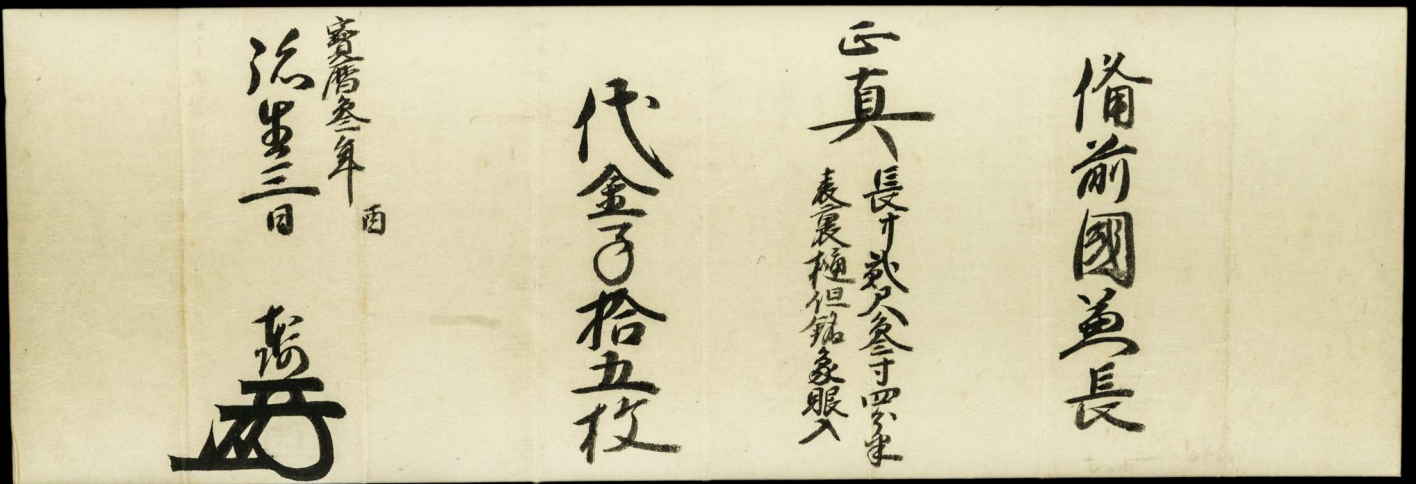 備前國兼長
正真
長サ貳尺叁寸四分半
表裏樋但銘象眼入
代金子拾五枚
寶曆叁年
酉
弥生三日
本阿